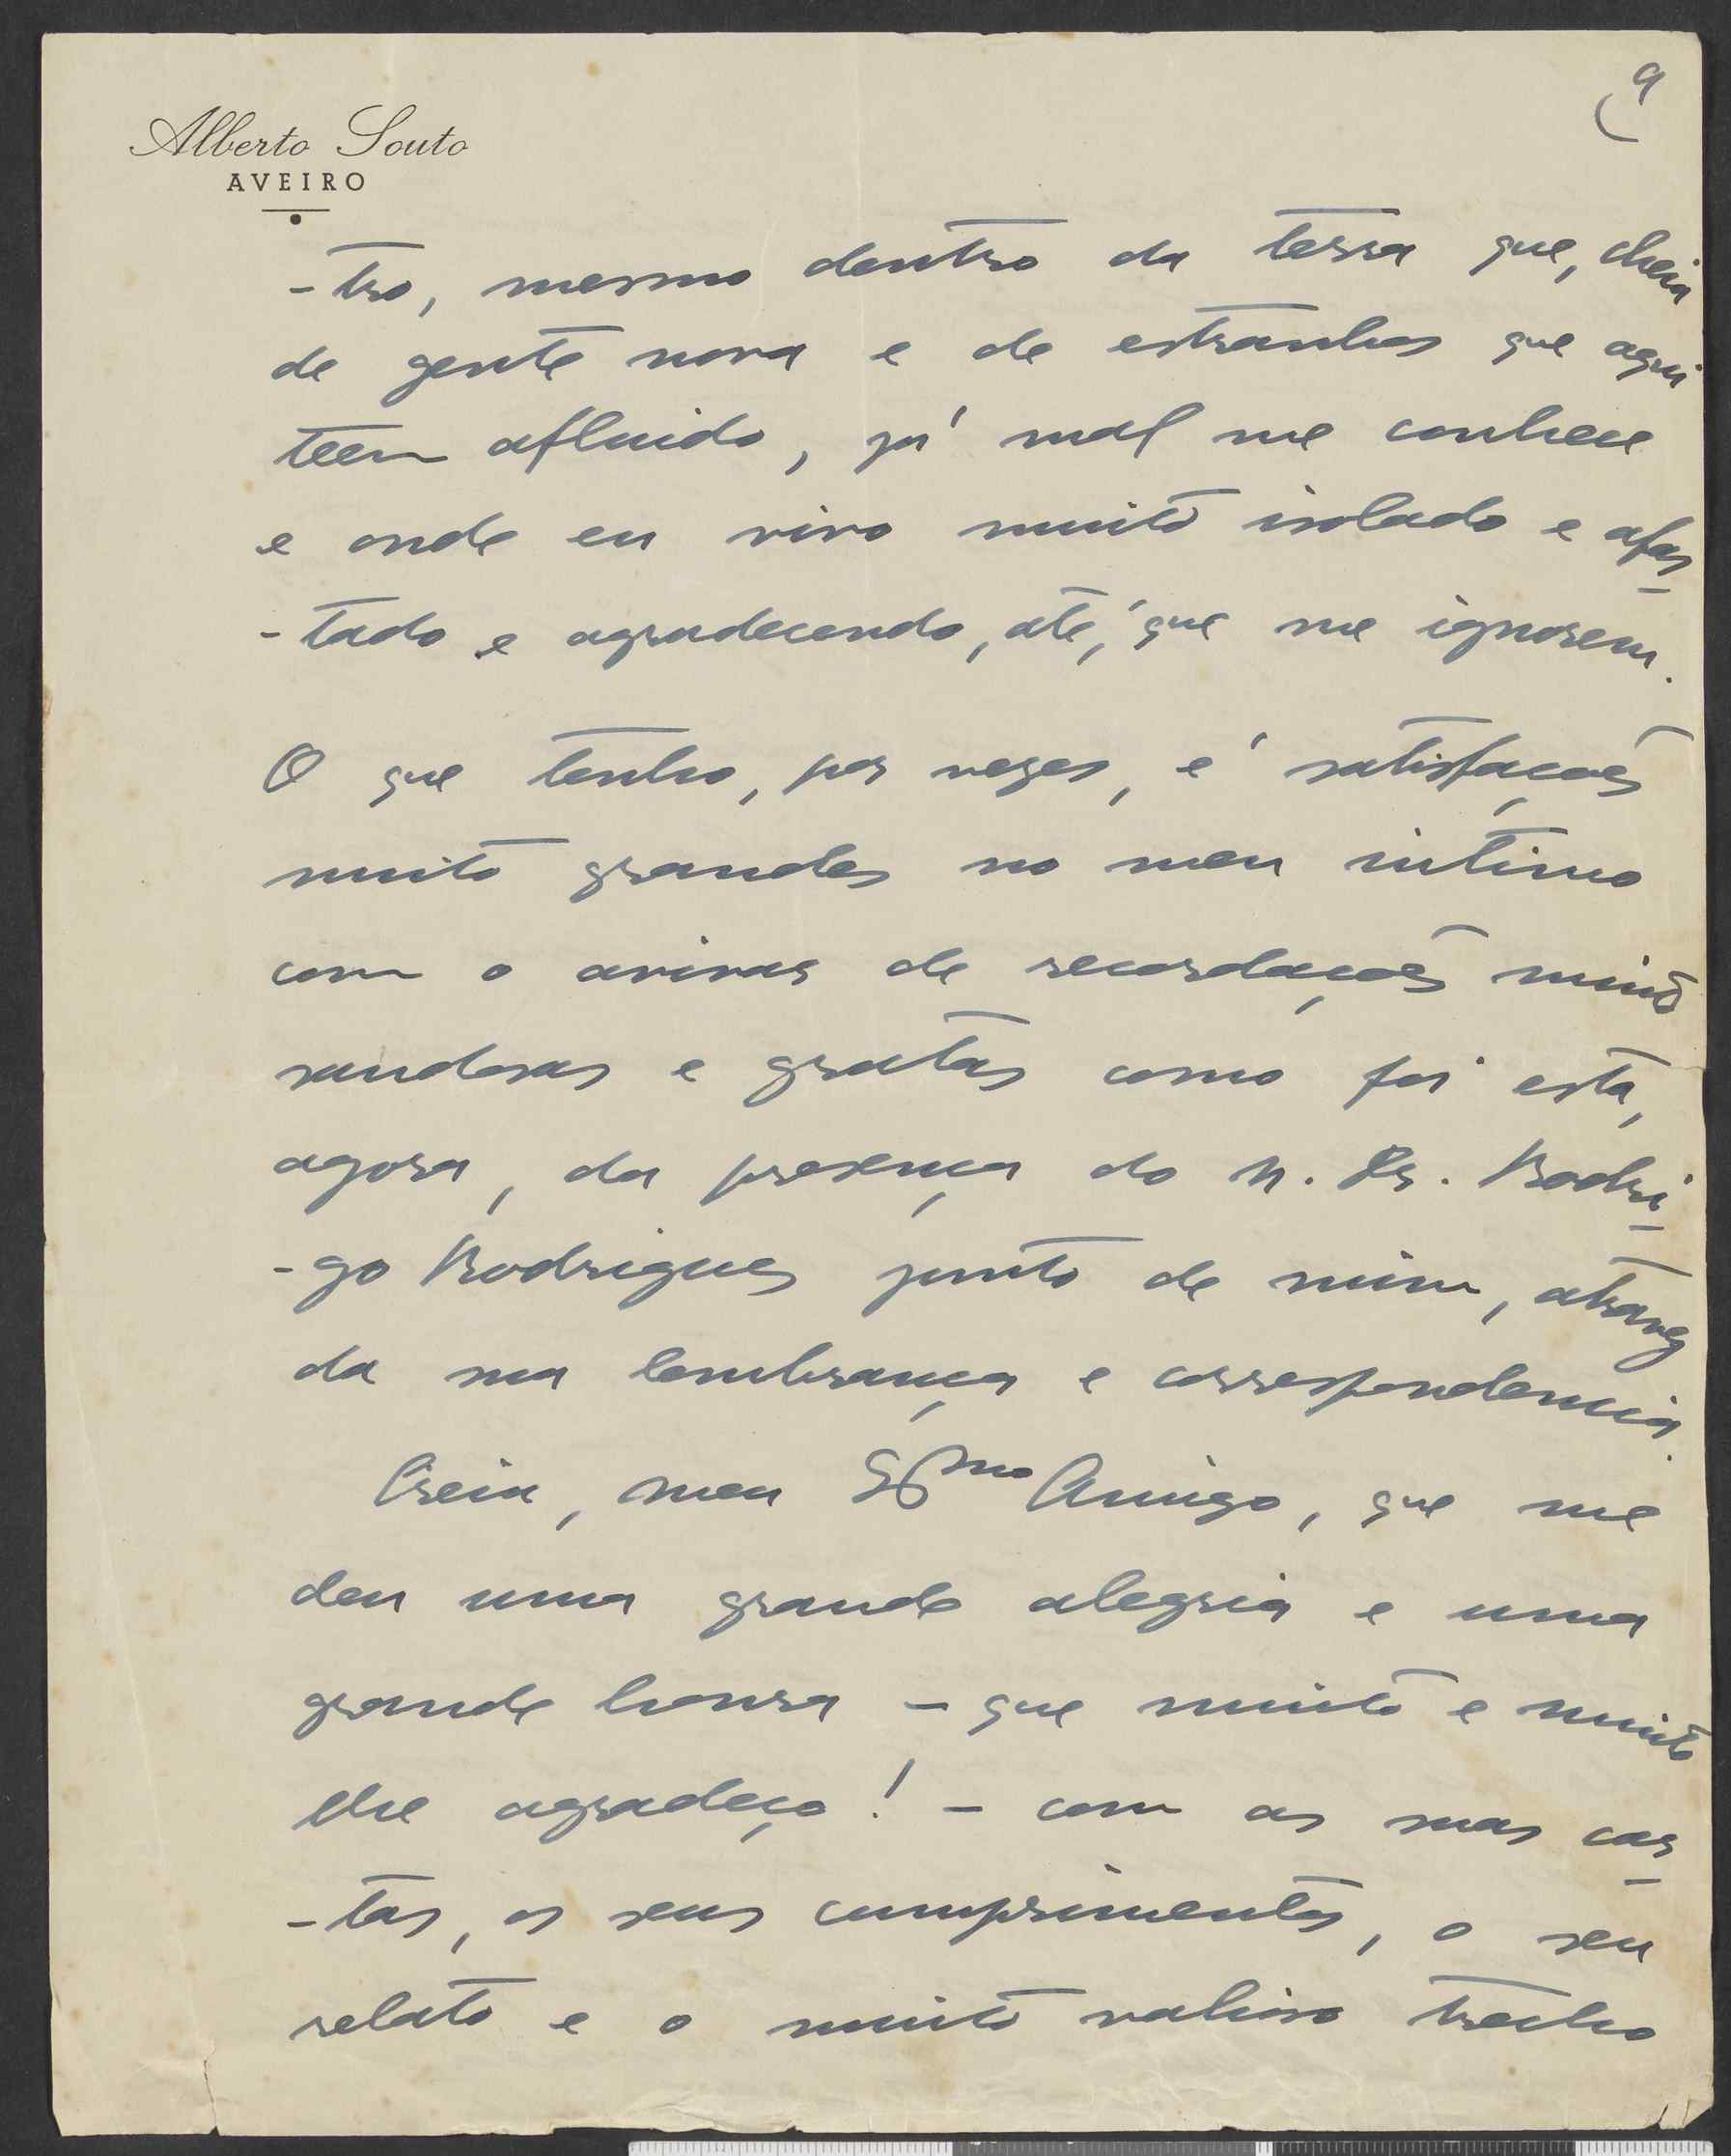 9
Alberto Souto
AVEIRO
-tro, mesmo dentro da terra que, cheia
de gente nova e de estranhos que aqui
teem afluido, já mal me conhece
e onde eu vivo muito isolado e afas-
-tado e agradecendo, até, que me ignorem.
O que tenho, por vezes, é satisfações
muito grandes no meu intimo
com o avivar de recordações muito
saudosas e gratas como foi esta,
agora, da presença do sr. Dr. Rodri-
-go Rodrigues junto de mim, atravez
da sua lembrança e correspondencia.
Creia, meu Exmo Amigo, que me
deu uma grande alegria e uma
grande honra - que muito e muito
lhe agradeço! - com as suas car-
-tas, os seus cumprimentos, o seu
relato e o muito valioso trecho